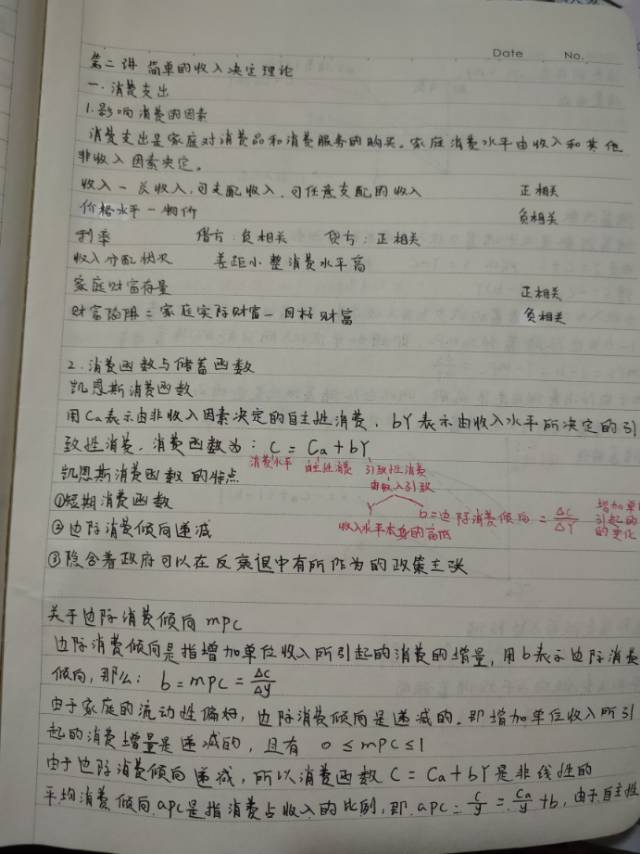 Date No.
第二讲 简单的收入决定理论
一. 消费支出
1.影响消费的因素
消费支出是家庭对消费品和消费服务的购买。家庭消费水平由收入和其他
非收入因素决定。
收入 - 收入,可支配收入、可任意支配的收入 正相关
价格水平 - 物价 负相关
利率 借方:负相关 贷方:正相关
收入分配状况 差距小 整消费水平高
家庭财富存量 正相关
财富陷阱=家庭实际财富-目标财富 负相关
2.消费函数与储蓄函数
凯恩斯消费函数
用Ca表示由非收入因素决定的自主性消费,bY表示由收入水平所决定的引
致性消费。消费函数为:C = Ca + bY
消费水平 自主性消费 引致性消费
凯恩斯消费函数的特点
由收入引致
①短期消费函数
Y b=边际消费倾向 = ΔC/ΔY 增加单 引起的 的变化
②边际消费倾向递减
收入水平本身的高低
③隐含着政府可以在反衰退中有所作为的政策主张
关于边际消费倾向mpc
边际消费倾向是指增加单位收入所引起的消费的增量,用b表示边际消费
倾向,那么: b = mpc = Δc/Δy
由于家庭的流动性偏好,边际消费倾向是递减的。即增加单位收入所引
起的消费增量是递减的,且有 0≤mpc≤1
由于边际消费倾向递减,所以消费函数C=Ca+bY是非线性的
平均消费倾向.apc是指消费占收入的比例,即.apc = c/y = Ca/y + b,由于自主性